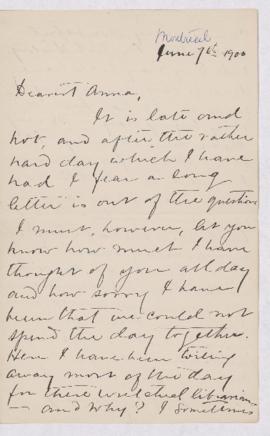 Montreal
June 7th 1900
Dearest Anna,
It is late and
hot, and after the rather
hard day which I have
had I fear a long
letter is out of the question
I must, however, let you
know how much I have
thought of you all day
and how sorry I have
been that we could not
spend the day together.
Here I have been toiling
away most of the day
for these wretched librarians
-- and why? I sometimes